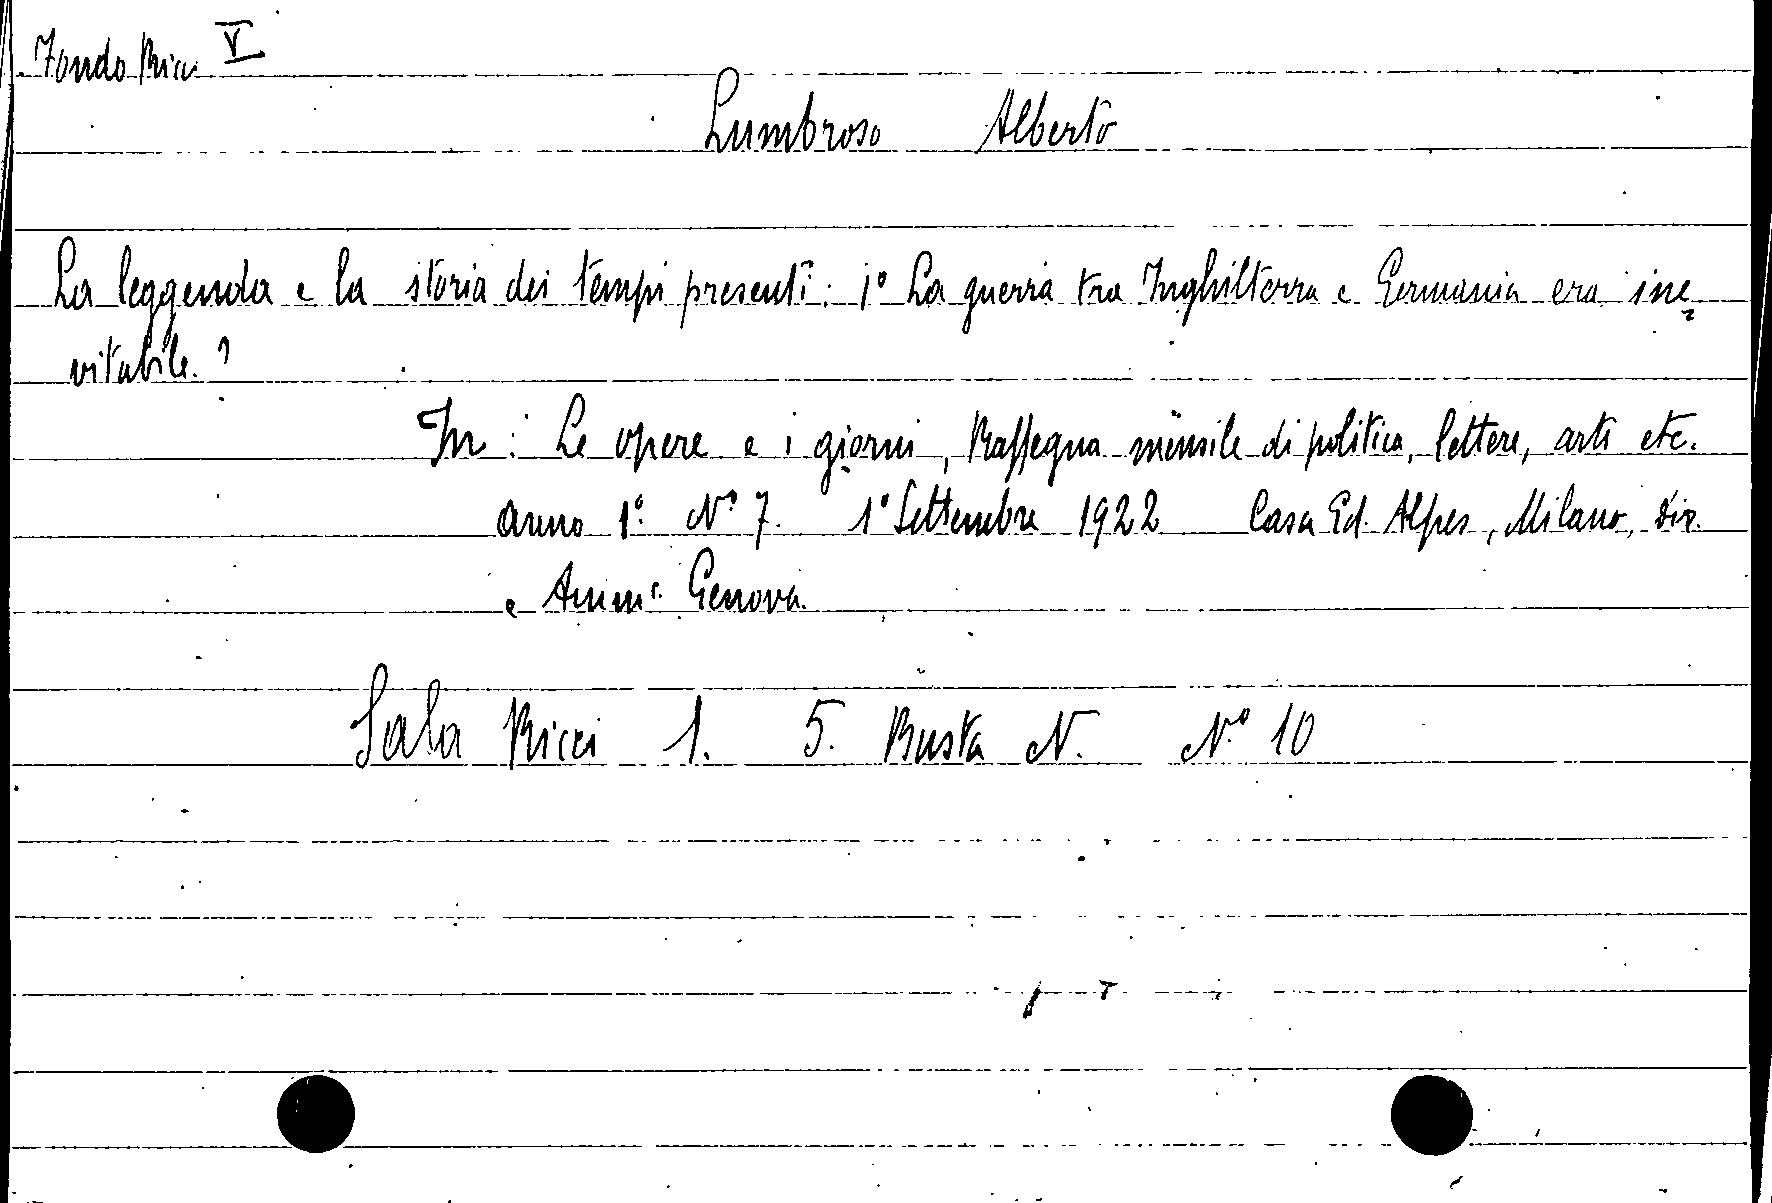 Fondo Ricci V
Lumbroso Alberto
La leggenda e la storia dei tempi presenti: 1° La guerra tra Inghilterra e Germania era ine
vitabile?
In: Le opere e i giorni, Rassegna mensile di politica, lettere, arti etc.
anno 1°. N° 7. 1° Settembre 1922 Casa Ed. Alpes, Milano, Dir.
e Amm. Genova.
Sala Ricci 1. 5. Busta N. N° 10